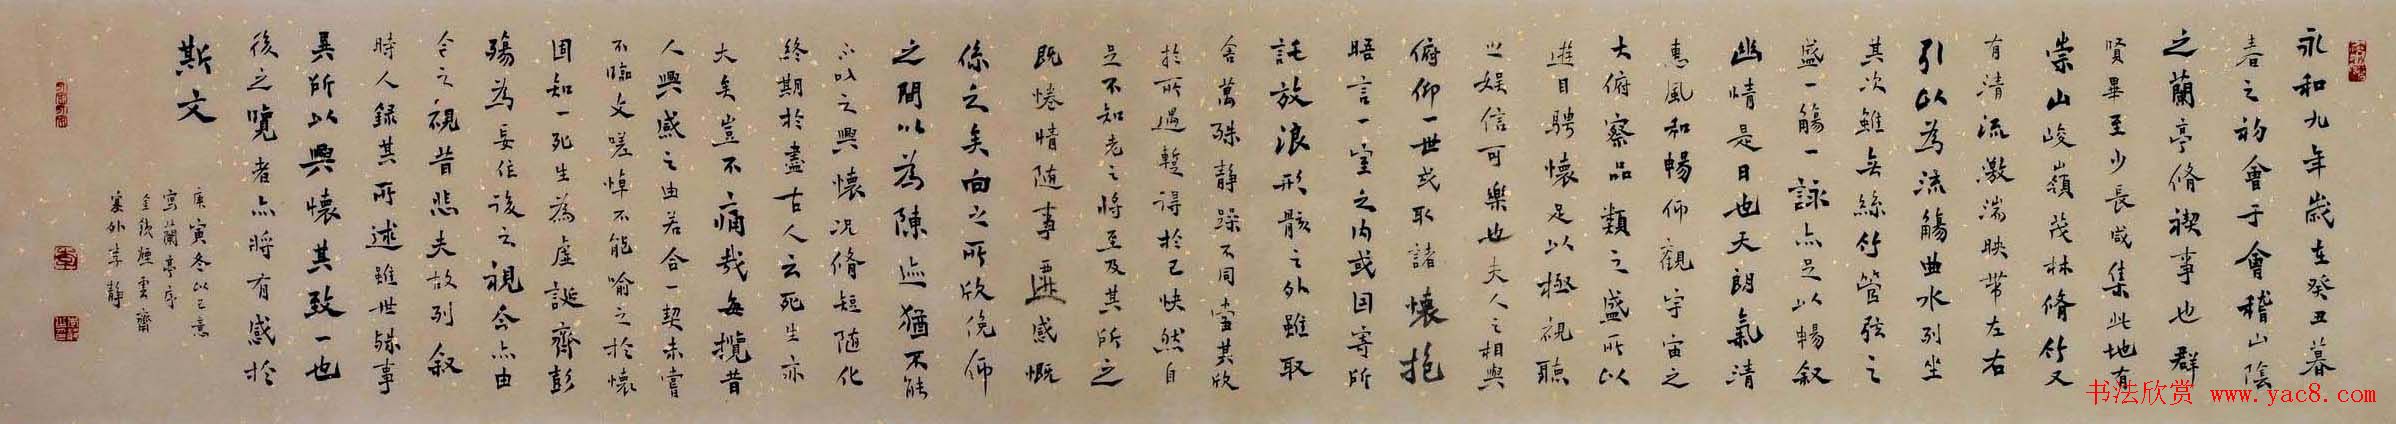 永和九年歲在癸丑暮
春之初會于會稽山陰
之蘭亭脩禊事也群
賢畢至少長咸集此地有
崇山峻嶺茂林脩竹又
有清流激湍映帶左右
引以為流觴曲水列坐
其次雖無絲竹管弦之
盛一觴一詠亦足以暢叙
幽情是日也天朗氣清
惠風和暢仰觀宇宙之
大俯察品類之盛所以
遊目騁懷足以極視聽
之娛信可樂也夫人之相與
俯仰一世或取諸懷抱
晤言一室之内或因寄所
託放浪形骸之外雖取
舍萬殊靜躁不同當其欣
於所遇暫得於己快然自
足不知老之將至及其所之
既惓情随事遷感慨
係之矣向之所欣俛仰
之間以為陳迹猶不能
不以之興懷況脩短随化
終期於盡古人云死生亦
大矣豈不痛哉每攬昔
人興感之由若合一契未嘗
不臨文嗟悼不能喻之於懷
固知一死生為虛誕齊彭
殤為妄作後之視今亦由
今之視昔悲夫故列叙
時人録其所述雖世殊事
異所以興懷其致一也
後之覽者亦將有感於
斯文
庚寅冬以己意
寫蘭亭序
塞外李靜
书法欣赏 www.yac8.com